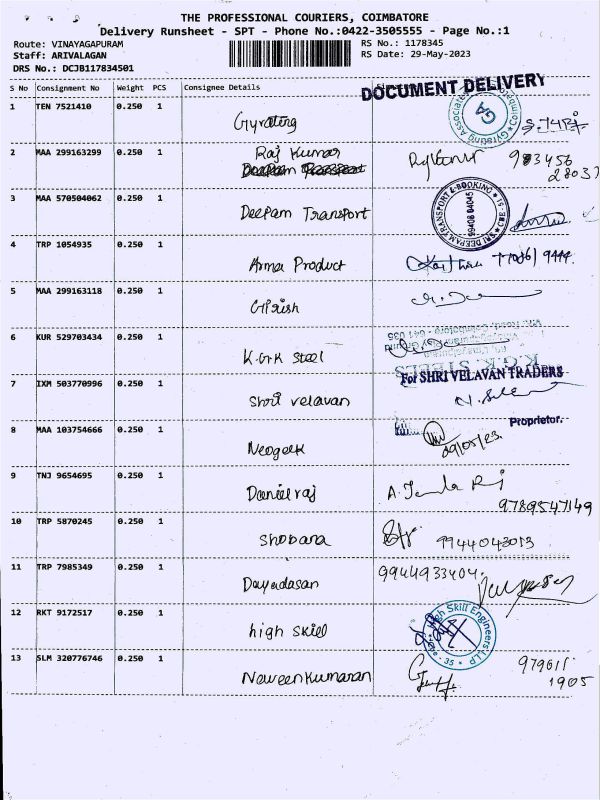 THE PROFESSIONAL COURIERS, COIMBATORE
Delivery Runsheet - SPT - Phone No.:0422-3505555 - Page No.:1
Route: VINAYAGAPURAM RS No.: 1178345
Staff: ARIVALAGAN RS Date: 29-May-2023
DRS No.: DCJB117834501
S No Consignment No Weight PCS Consignee Details
DOCUMENT DELIVERY
1 TEN 7521410 0.250 1 Gyrating
GA
2 MAA 299163299 0.250 1 Raj Kumar 983456
Deepam Transport 28037
3 MAA 570504062 0.250 1 Deepam Transport
SRI DEEPAM TRANSPORT & BOOKING
99406 04045
4 TRP 1054935 0.250 1 Arma Product
5 MAA 299163118 0.250 1 Girish
6 KUR 529703434 0.250 1 K.G.K Steel
K.G.K. STEELS
7 IXM 503770996 0.250 1 Shri velavan
For SHRI VELAVAN TRADERS
Proprietor.
8 MAA 103754666 0.250 1 Neogeek 29/05/23
9 TNJ 9654695 0.250 1 Daniel raj
9789547149
10 TRP 5870245 0.250 1 Shobana 9944043013
11 TRP 7985349 0.250 1 Dayadasan 9944933404
12 RKT 9172517 0.250 1 high skill
High Skill Engineers LLP
35
13 SLM 320776746 0.250 1 Naveen Kumaran 979611
1905